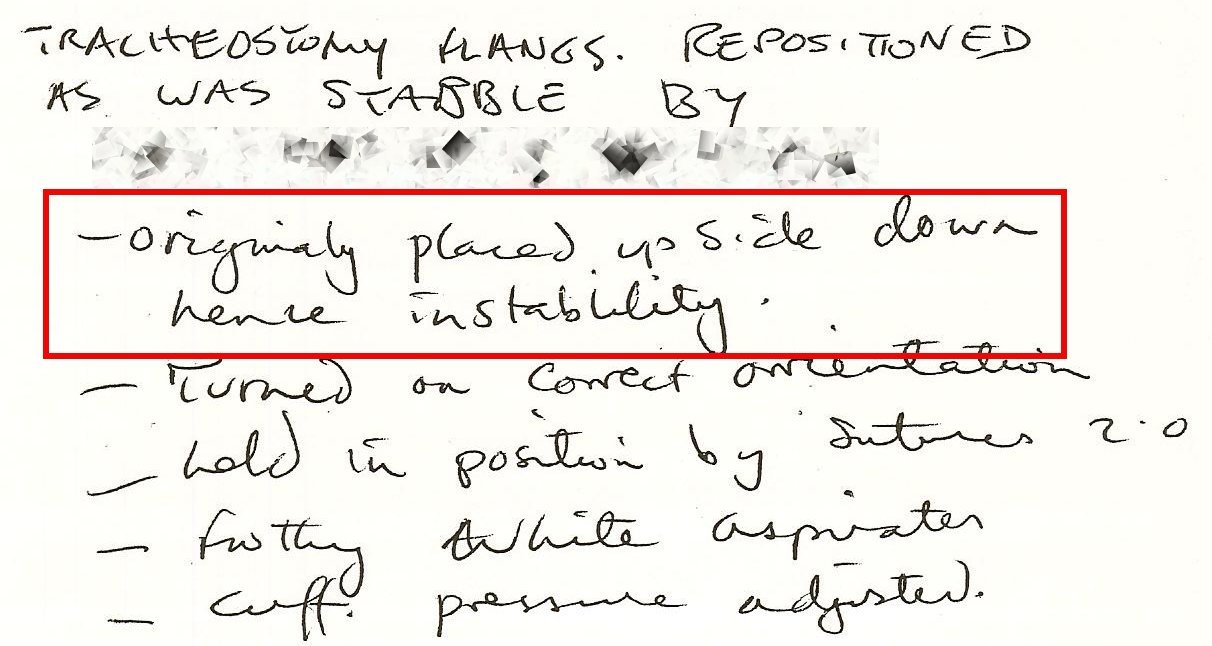 TRACHEOSTOMY FLANGS. REPOSITIONED
AS WAS STABBLE BY
- originaly placed upside down
hence instability.
- Turned on correct orrientation
- held in position by sutures 2.0
- frothy white aspirates
- cuff. pressure adjusted.